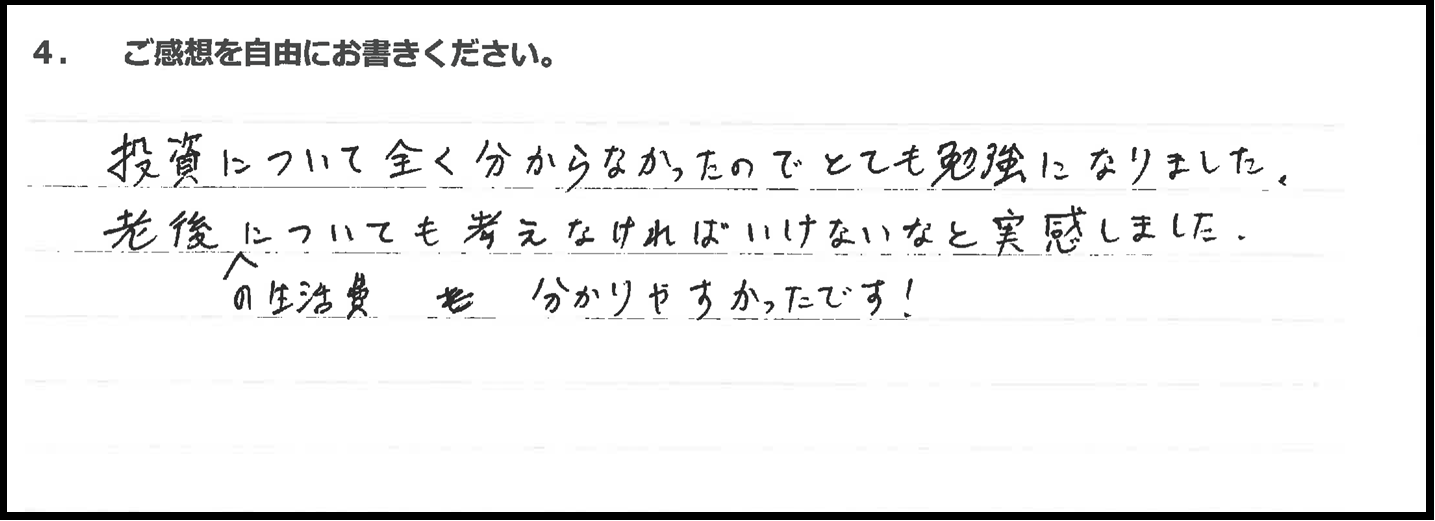 4. ご感想を自由にお書きください。
投資について全く分からなかったのでとても勉強になりました。
老後についても考えなければいけないなと実感しました。
の生活費 分かりやすかったです!